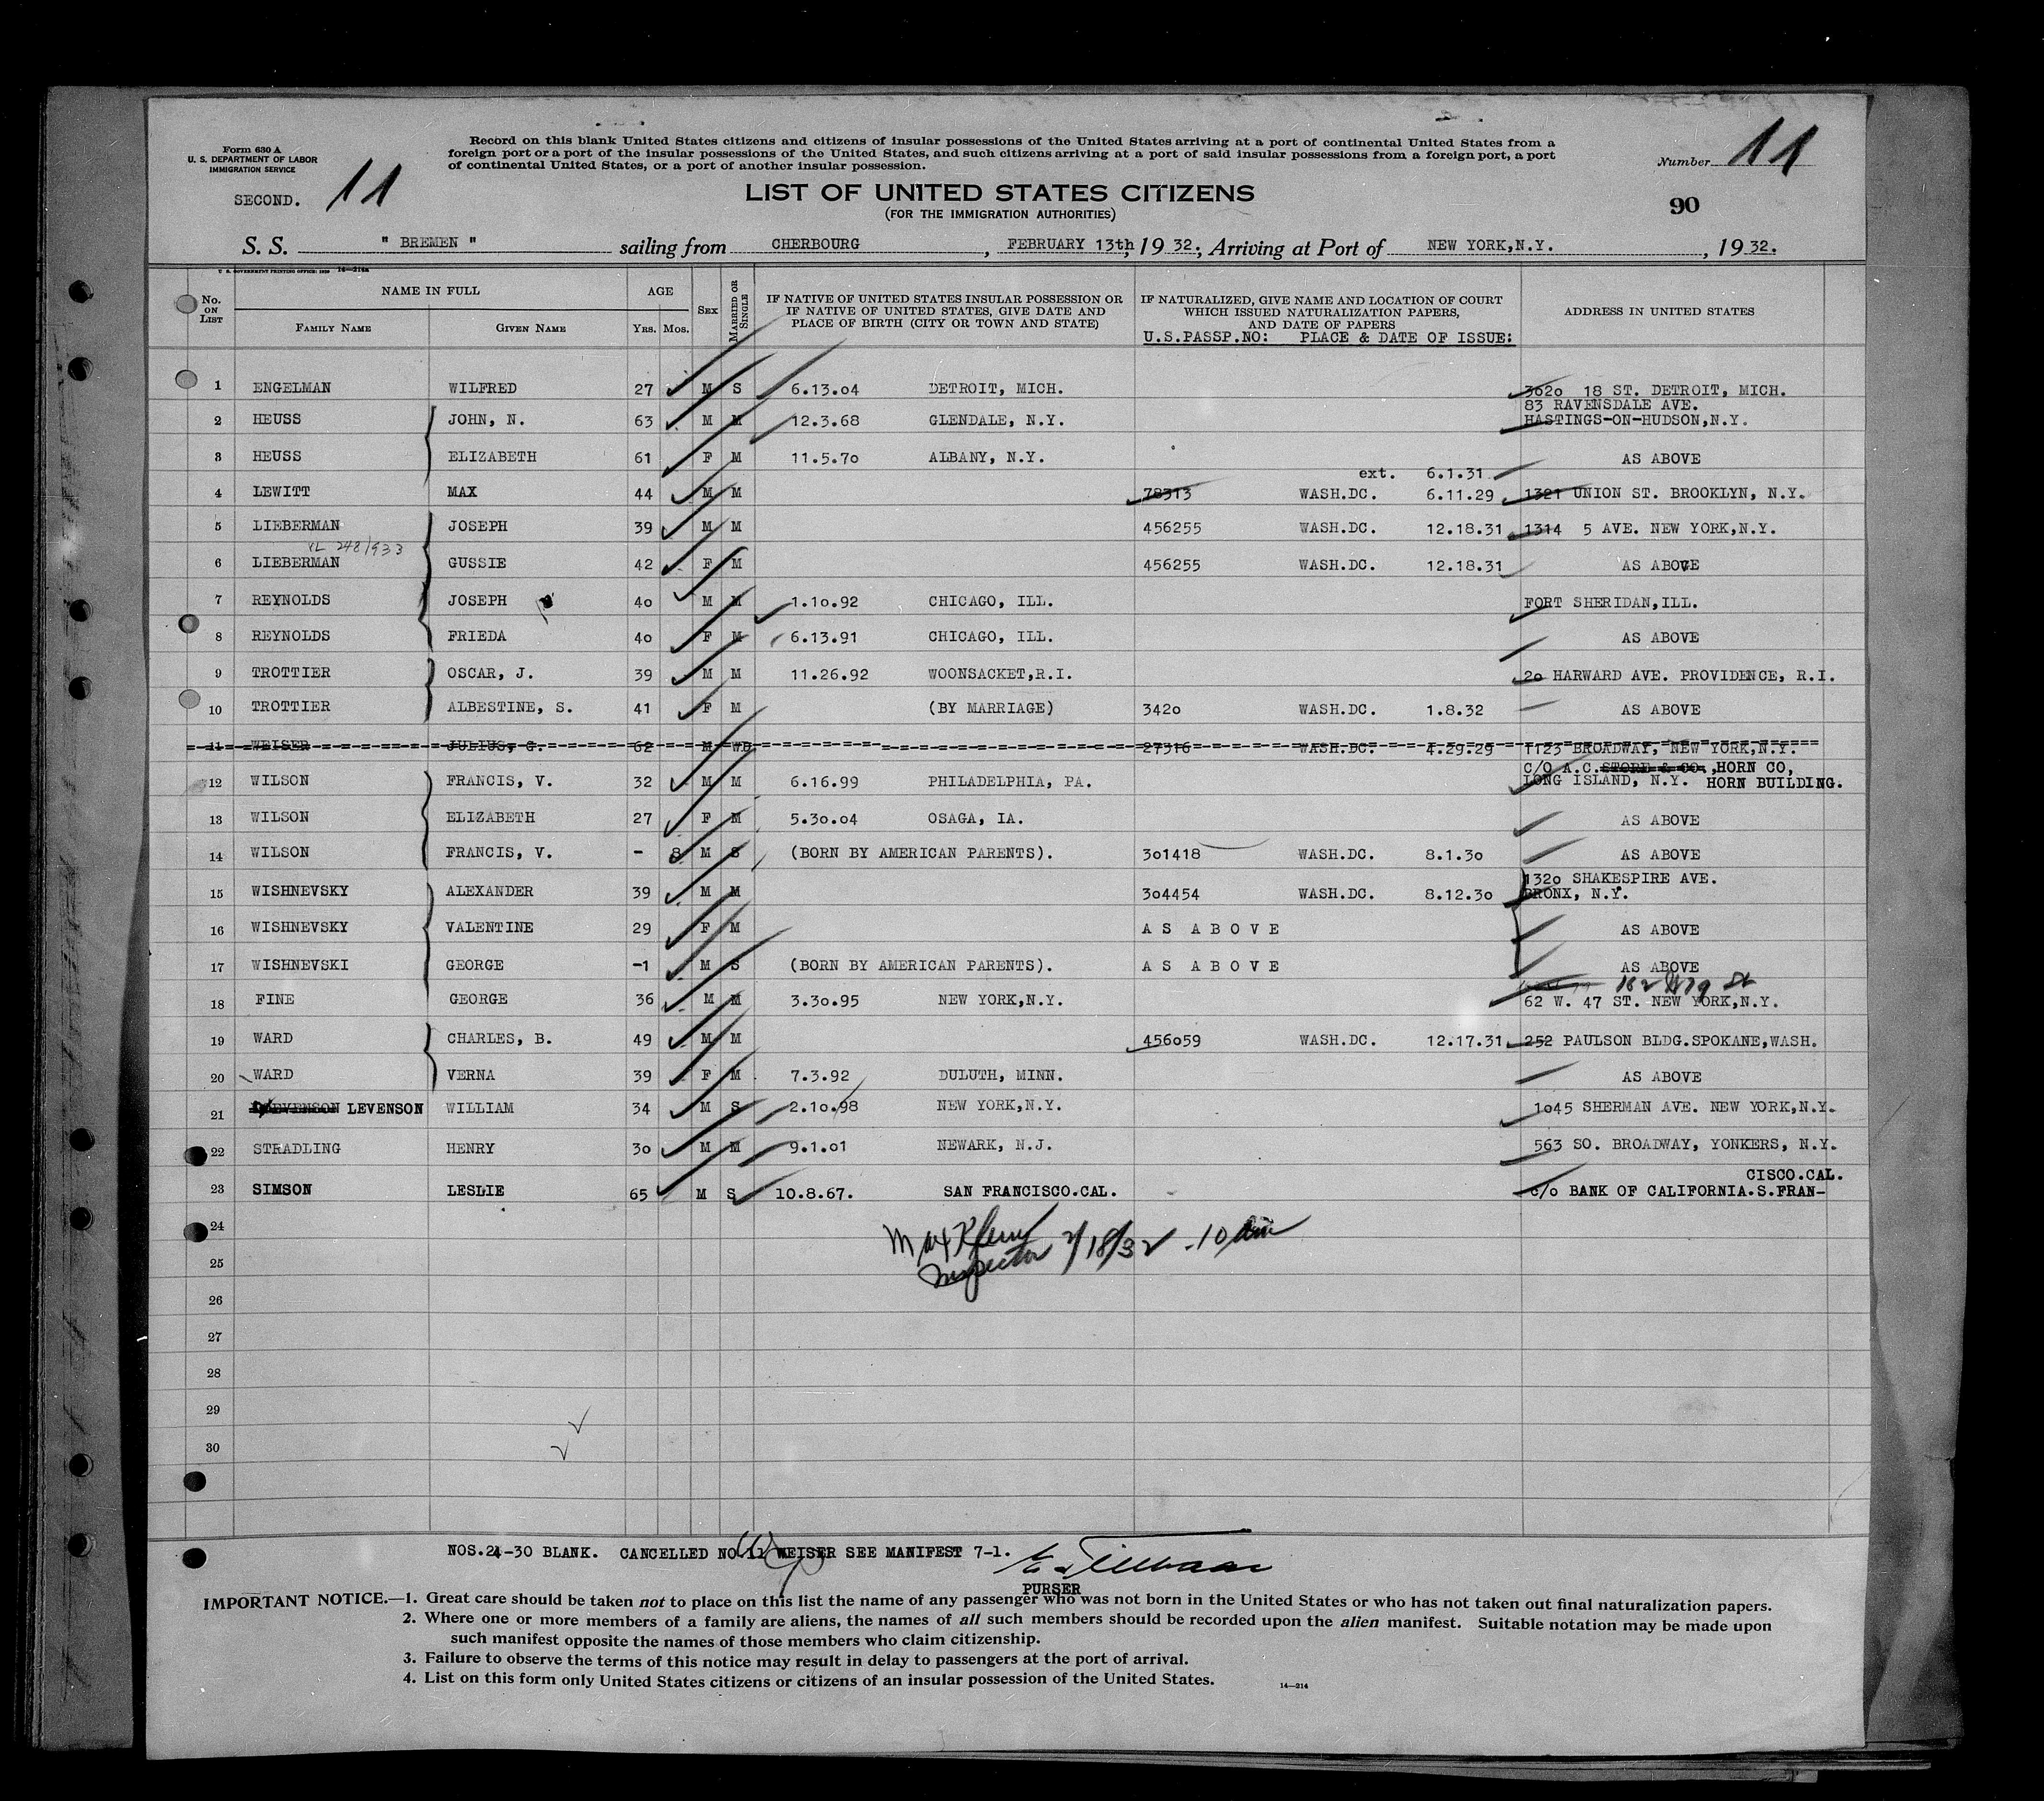 Form 630 A
U. S. DEPARTMENT OF LABOR
IMMIGRATION SERVICE
Record on this blank United States citizens and citizens of insular possessions of the United States arriving at a port of continental United States from a
foreign port or a port of the insular possessions of the United States, and such citizens arriving at a port of said insular possessions from a foreign port, a port
of continental United States, or a port of another insular possession.
Number 11
SECOND. 11
LIST OF UNITED STATES CITIZENS
(FOR THE IMMIGRATION AUTHORITIES)
90
S. S. " BREMEN " sailing from CHERBOURG, FEBRUARY 13th, 19 32. ; Arriving at Port of NEW YORK,N.Y. , 19 32.
U. S. GOVERNMENT PRINTING OFFICE: 1930 14—214a
No. ON LIST NAME IN FULL FAMILY NAME GIVEN NAME AGE YRS. MOS. SEX MARRIED OR SINGLE
IF NATIVE OF UNITED STATES INSULAR POSSESSION OR
IF NATIVE OF UNITED STATES, GIVE DATE AND
PLACE OF BIRTH (CITY OR TOWN AND STATE)
IF NATURALIZED, GIVE NAME AND LOCATION OF COURT
WHICH ISSUED NATURALIZATION PAPERS,
AND DATE OF PAPERS
U.S.PASSP.NO: PLACE & DATE OF ISSUE:
ADDRESS IN UNITED STATES
1 ENGELMAN WILFRED 27 M S 6.13.04 DETROIT, MICH. 3020 18 ST. DETROIT, MICH.
83 RAVENSDALE AVE.
2 HEUSS JOHN, N. 63 M M 12.3.68 GLENDALE, N.Y. HASTINGS-ON-HUDSON,N.Y.
3 HEUSS ELIZABETH 61 F M 11.5.70 ALBANY, N.Y. AS ABOVE
ext. 6.1.31
4 LEWITT MAX 44 M M 78313 WASH.DC. 6.11.29 1321 UNION ST. BROOKLYN, N.Y.
5 LIEBERMAN JOSEPH 39 M M 456255 WASH.DC. 12.18.31 1314 5 AVE. NEW YORK,N.Y.
VL 248/933
6 LIEBERMAN GUSSIE 42 F M 456255 WASH.DC. 12.18.31 AS ABOVE
7 REYNOLDS JOSEPH 40 M M 1.10.92 CHICAGO, ILL. FORT SHERIDAN,ILL.
8 REYNOLDS FRIEDA 40 F M 6.13.91 CHICAGO, ILL. AS ABOVE
9 TROTTIER OSCAR, J. 39 M M 11.26.92 WOONSACKET,R.I. 20 HARWARD AVE. PROVIDENCE, R.I.
10 TROTTIER ALBESTINE, S. 41 F M (BY MARRIAGE) 3420 WASH.DC. 1.8.32 AS ABOVE
11 WEISER JULIUS, G. 62 M WD 27316 WASH.DC. 4.29.29 1123 BROADWAY, NEW YORK,N.Y.
C/O A.C. STORE & CO. ,HORN CO,
12 WILSON FRANCIS, V. 32 M M 6.16.99 PHILADELPHIA, PA. LONG ISLAND, N.Y. HORN BUILDING.
13 WILSON ELIZABETH 27 F M 5.30.04 OSAGA, IA. AS ABOVE
14 WILSON FRANCIS, V. - 8 M S (BORN BY AMERICAN PARENTS). 301418 WASH.DC. 8.1.30 AS ABOVE
1320 SHAKESPIRE AVE.
15 WISHNEVSKY ALEXANDER 39 M M 304454 WASH.DC. 8.12.30 BRONX, N.Y.
16 WISHNEVSKY VALENTINE 29 F M A S A B O V E AS ABOVE
17 WISHNEVSKI GEORGE -1 M S (BORN BY AMERICAN PARENTS). A S A B O V E AS ABOVE
18 FINE GEORGE 36 M M 3.30.95 NEW YORK,N.Y. 62 W. 47 ST. NEW YORK,N.Y.
19 WARD CHARLES, B. 49 M M 456059 WASH.DC. 12.17.31 252 PAULSON BLDG.SPOKANE,WASH.
20 WARD VERNA 39 F M 7.3.92 DULUTH, MINN. AS ABOVE
21 LEVENSON WILLIAM 34 M S 2.10.98 NEW YORK,N.Y. 1045 SHERMAN AVE. NEW YORK,N.Y.
22 STRADLING HENRY 30 M M 9.1.01 NEWARK, N.J. 563 SO. BROADWAY, YONKERS, N.Y.
CISCO.CAL.
23 SIMSON LESLIE 65 M S 10.8.67. SAN FRANCISCO.CAL. c/o BANK OF CALIFORNIA.S.FRAN-
24
Inspector 2/18/32 - 10 am
25
26
27
28
29
30
NOS.24-30 BLANK. CANCELLED NO.11 WEISER SEE MANIFEST 7-1.
PURSER
IMPORTANT NOTICE.—1. Great care should be taken not to place on this list the name of any passenger who was not born in the United States or who has not taken out final naturalization papers.
2. Where one or more members of a family are aliens, the names of all such members should be recorded upon the alien manifest. Suitable notation may be made upon
such manifest opposite the names of those members who claim citizenship.
3. Failure to observe the terms of this notice may result in delay to passengers at the port of arrival.
4. List on this form only United States citizens or citizens of an insular possession of the United States.
14—214